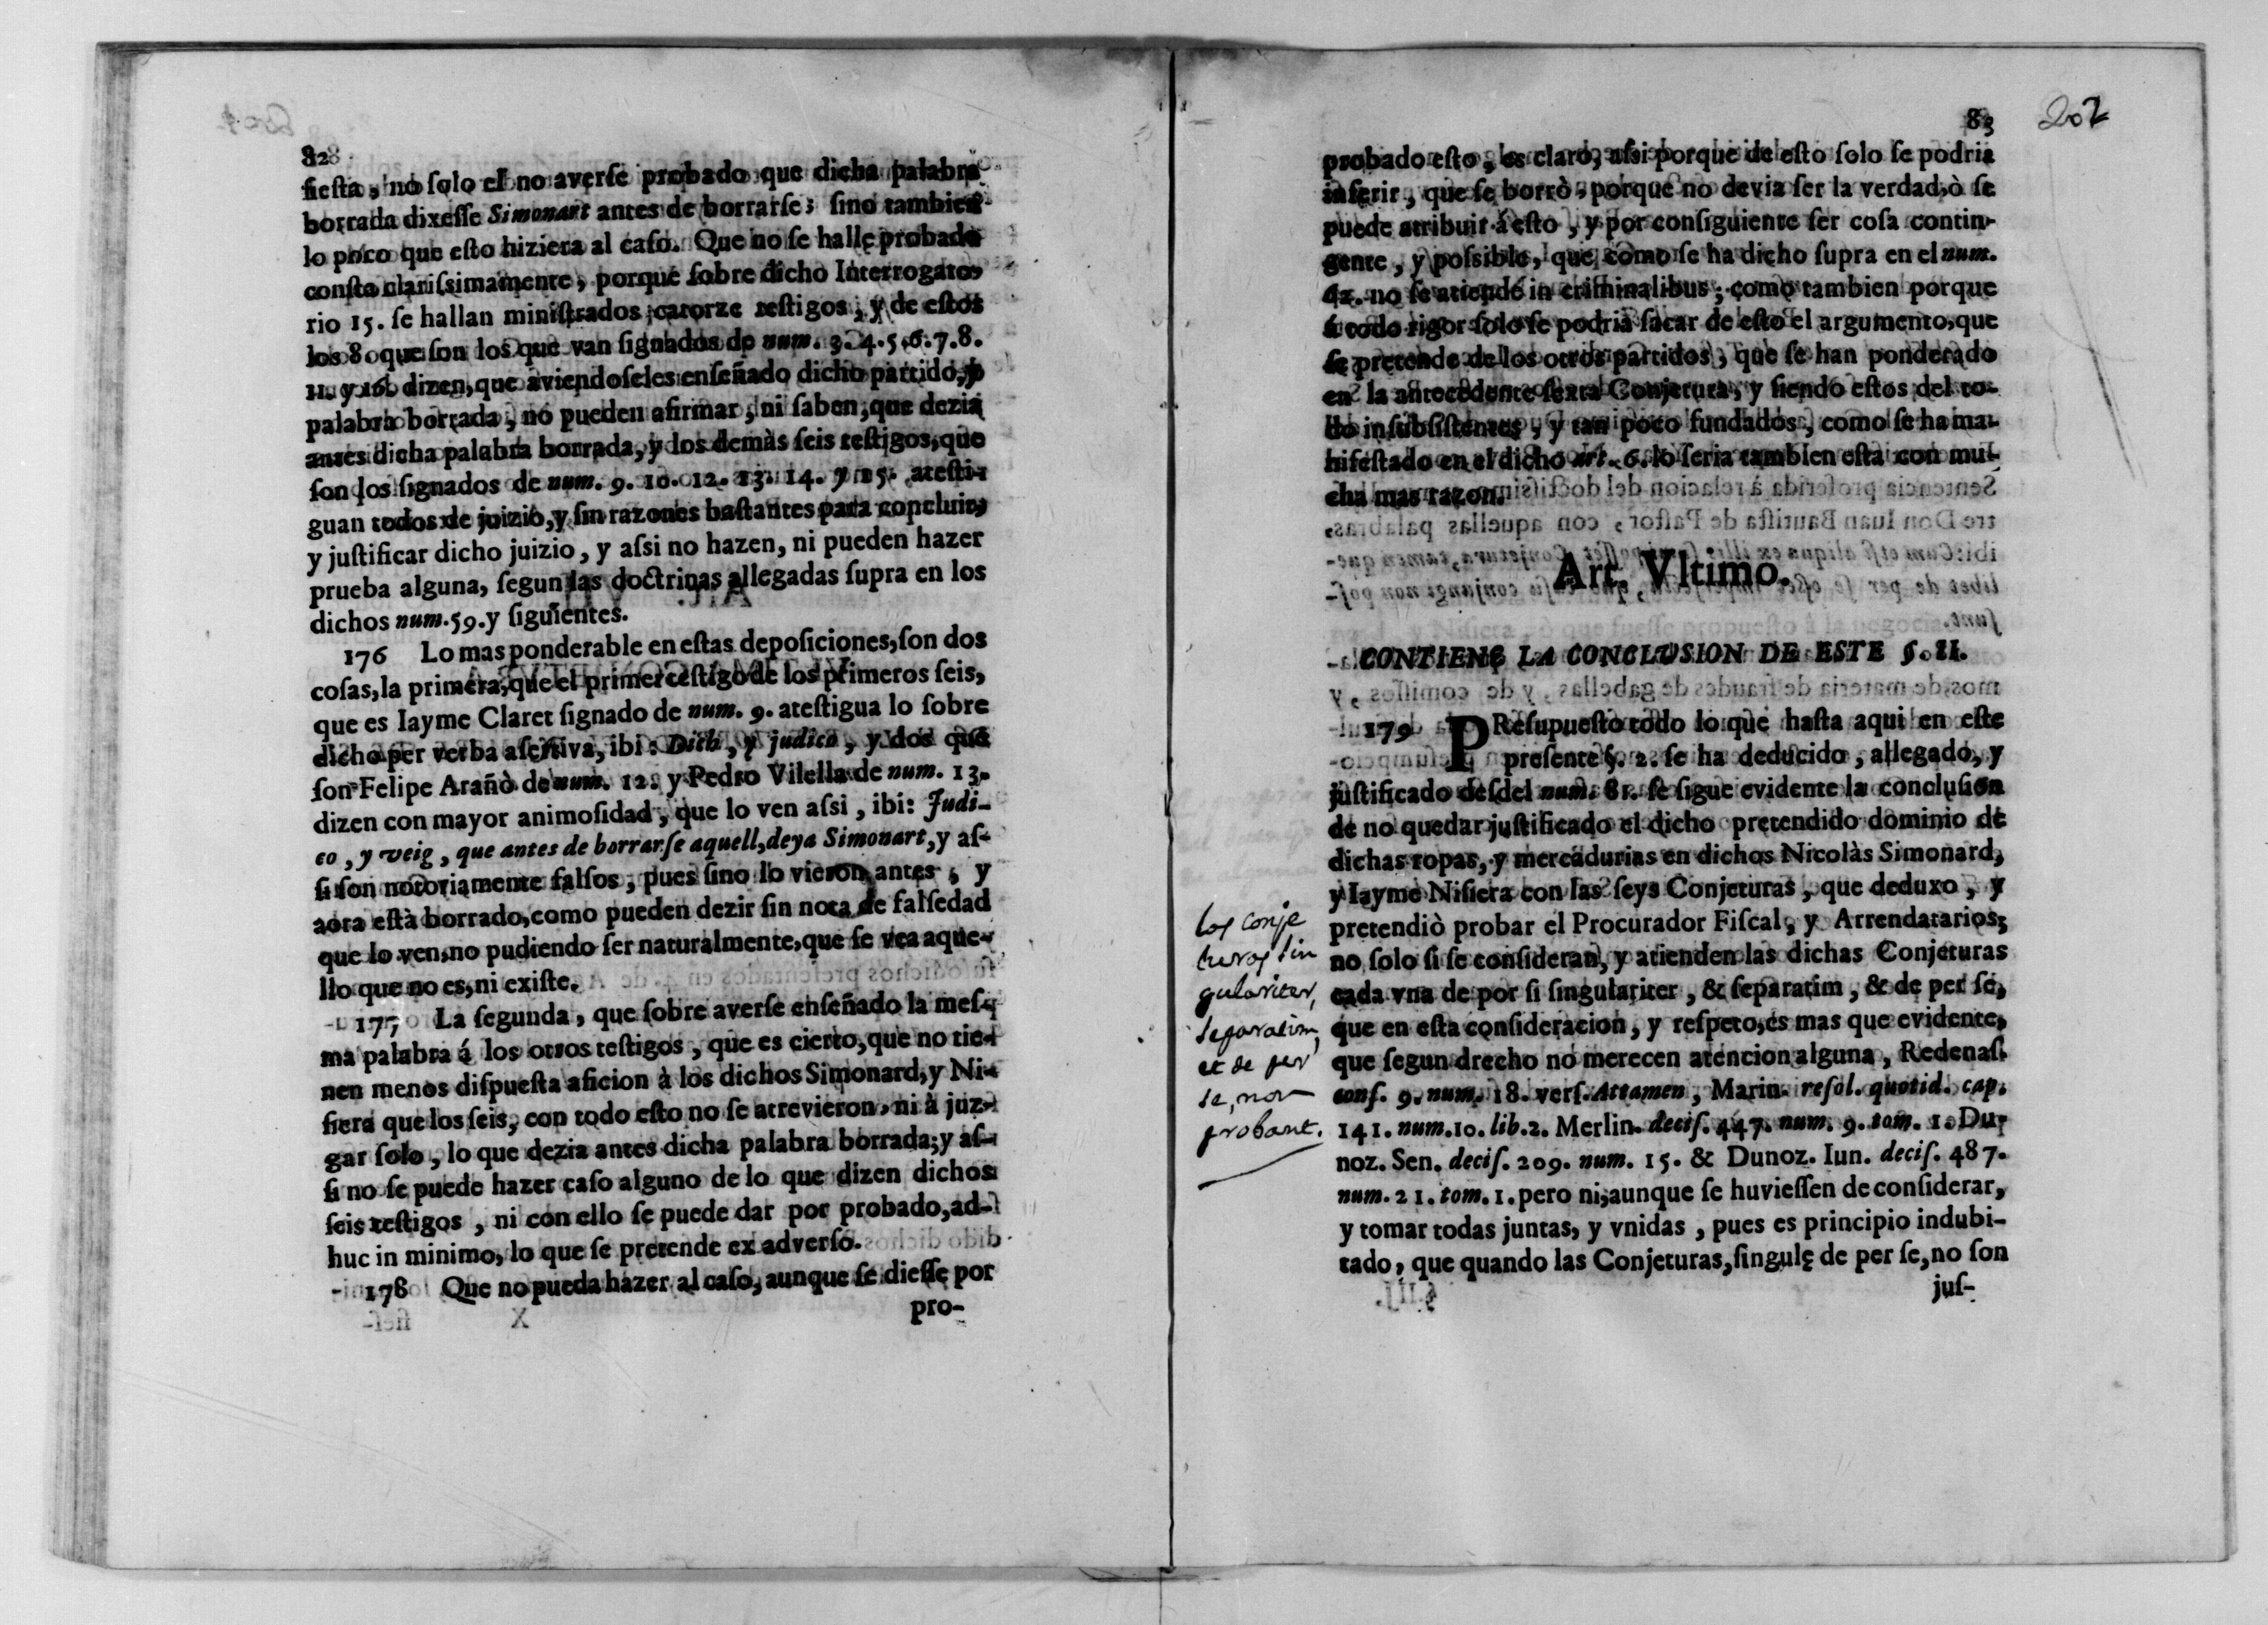 82
fiesta, no solo el no averse probado que dicha palabra
borrada dixesse Simonart antes de borrarse; sino tambien
lo poco que esto hiziera al caso. Que no se halle probado
consta clarissimamente, porque sobre dicho Interrogato-
rio 15. se hallan ministrados catorze testigos, y de estos
los 8. que son los que van signados de num. 3. 4. 5. 6. 7. 8.
11. y 16. dizen, que aviendoseles enseñado dicho partido, y
palabra borrada, no pueden afirmar, ni saben, que dezia
antes dicha palabra borrada, y los demàs seis testigos, que
son los signados de num. 9. 10. 12. 13. 14. y 15. atesti-
guan todos de juizio, y sin razones bastantes para concluir,
y justificar dicho juizio, y assi no hazen, ni pueden hazer
prueba alguna, segun las doctrinas allegadas supra en los
dichos num. 59. y siguientes.
176 Lo mas ponderable en estas deposiciones, son dos
cosas, la primera, que el primer testigo de los primeros seis,
que es Iayme Claret signado de num. 9. atestigua lo sobre
dicho per verba asertiva, ibi: Dich, y judico, y dos que
son Felipe Arañò de num. 12. y Pedro Vilella de num. 13.
dizen con mayor animosidad, que lo ven assi, ibi: Judi-
co, y veig, que antes de borrarse aquell, deya Simonart, y as-
si son notoriamente falsos, pues sino lo vieron antes, y
aora està borrado, como pueden dezir sin nota de falsedad
que lo ven, no pudiendo ser naturalmente, que se vea aque-
llo que no es, ni existe.
177 La segunda, que sobre averse enseñado la mes-
ma palabra á los otros testigos, que es cierto, que no tie-
nen menos dispuesta aficion à los dichos Simonard, y Ni-
siera que los seis, con todo esto no se atrevieron, ni à juz-
gar solo, lo que dezia antes dicha palabra borrada; y as-
si no se puede hazer caso alguno de lo que dizen dichos
seis testigos, ni con ello se puede dar por probado, ad-
huc in minimo, lo que se pretende ex adverso.
178 Que no pueda hazer al caso, aunque se diesse por
pro-
83
202
probado esto, es claro; assi porque de esto solo se podria
inferir, que se borrò, porque no devia ser la verdad, ò se
puede atribuir á esto, y por consiguiente ser cosa contin-
gente, y possible, que como se ha dicho supra en el num.
42. no se atiende in criminalibus; como tambien porque
á todo rigor solo se podria sacar de esto el argumento, que
se pretende de los otros partidos, que se han ponderado
en la antecedente sexta Conjetura, y siendo estos del to-
do insubsistentes, y tan poco fundados, como se ha ma-
nifestado en el dicho art. 6. lo seria tambien esta con mu-
cha mas razon.
Art. Vltimo.
CONTIENE LA CONCLUSION DE ESTE §. II.
179 PResupuesto todo lo que hasta aqui en este
presente §. 2. se ha deducido, allegado, y
justificado desdel num. 81. se sigue evidente la conclusion
de no quedar justificado el dicho pretendido dominio de
dichas ropas, y mercadurias en dichos Nicolàs Simonard,
y Iayme Nisiera con las seys Conjeturas, que deduxo, y
pretendiò probar el Procurador Fiscal, y Arrendatarios;
no solo si se consideran, y atienden las dichas Conjeturas
cada vna de por si singulariter, & separatim, & de per se,
que en esta consideracion, y respeto, es mas que evidente,
que segun drecho no merecen atencion alguna, Redenas.
cons. 9. num. 18. vers. Attamen, Marin. resol. quotid. cap.
141. num. 10. lib. 2. Merlin. decis. 447. num. 9. tom. 1. Du-
noz. Sen. decis. 209. num. 15. & Dunoz. Iun. decis. 487.
num. 21. tom. 1. pero ni, aunque se huviessen de considerar,
y tomar todas juntas, y vnidas, pues es principio indubi-
tado, que quando las Conjeturas, singulę de per se, no son
jus-
los conje
turas sin
gulariter,
separatim,
et de per
se, non
probant.